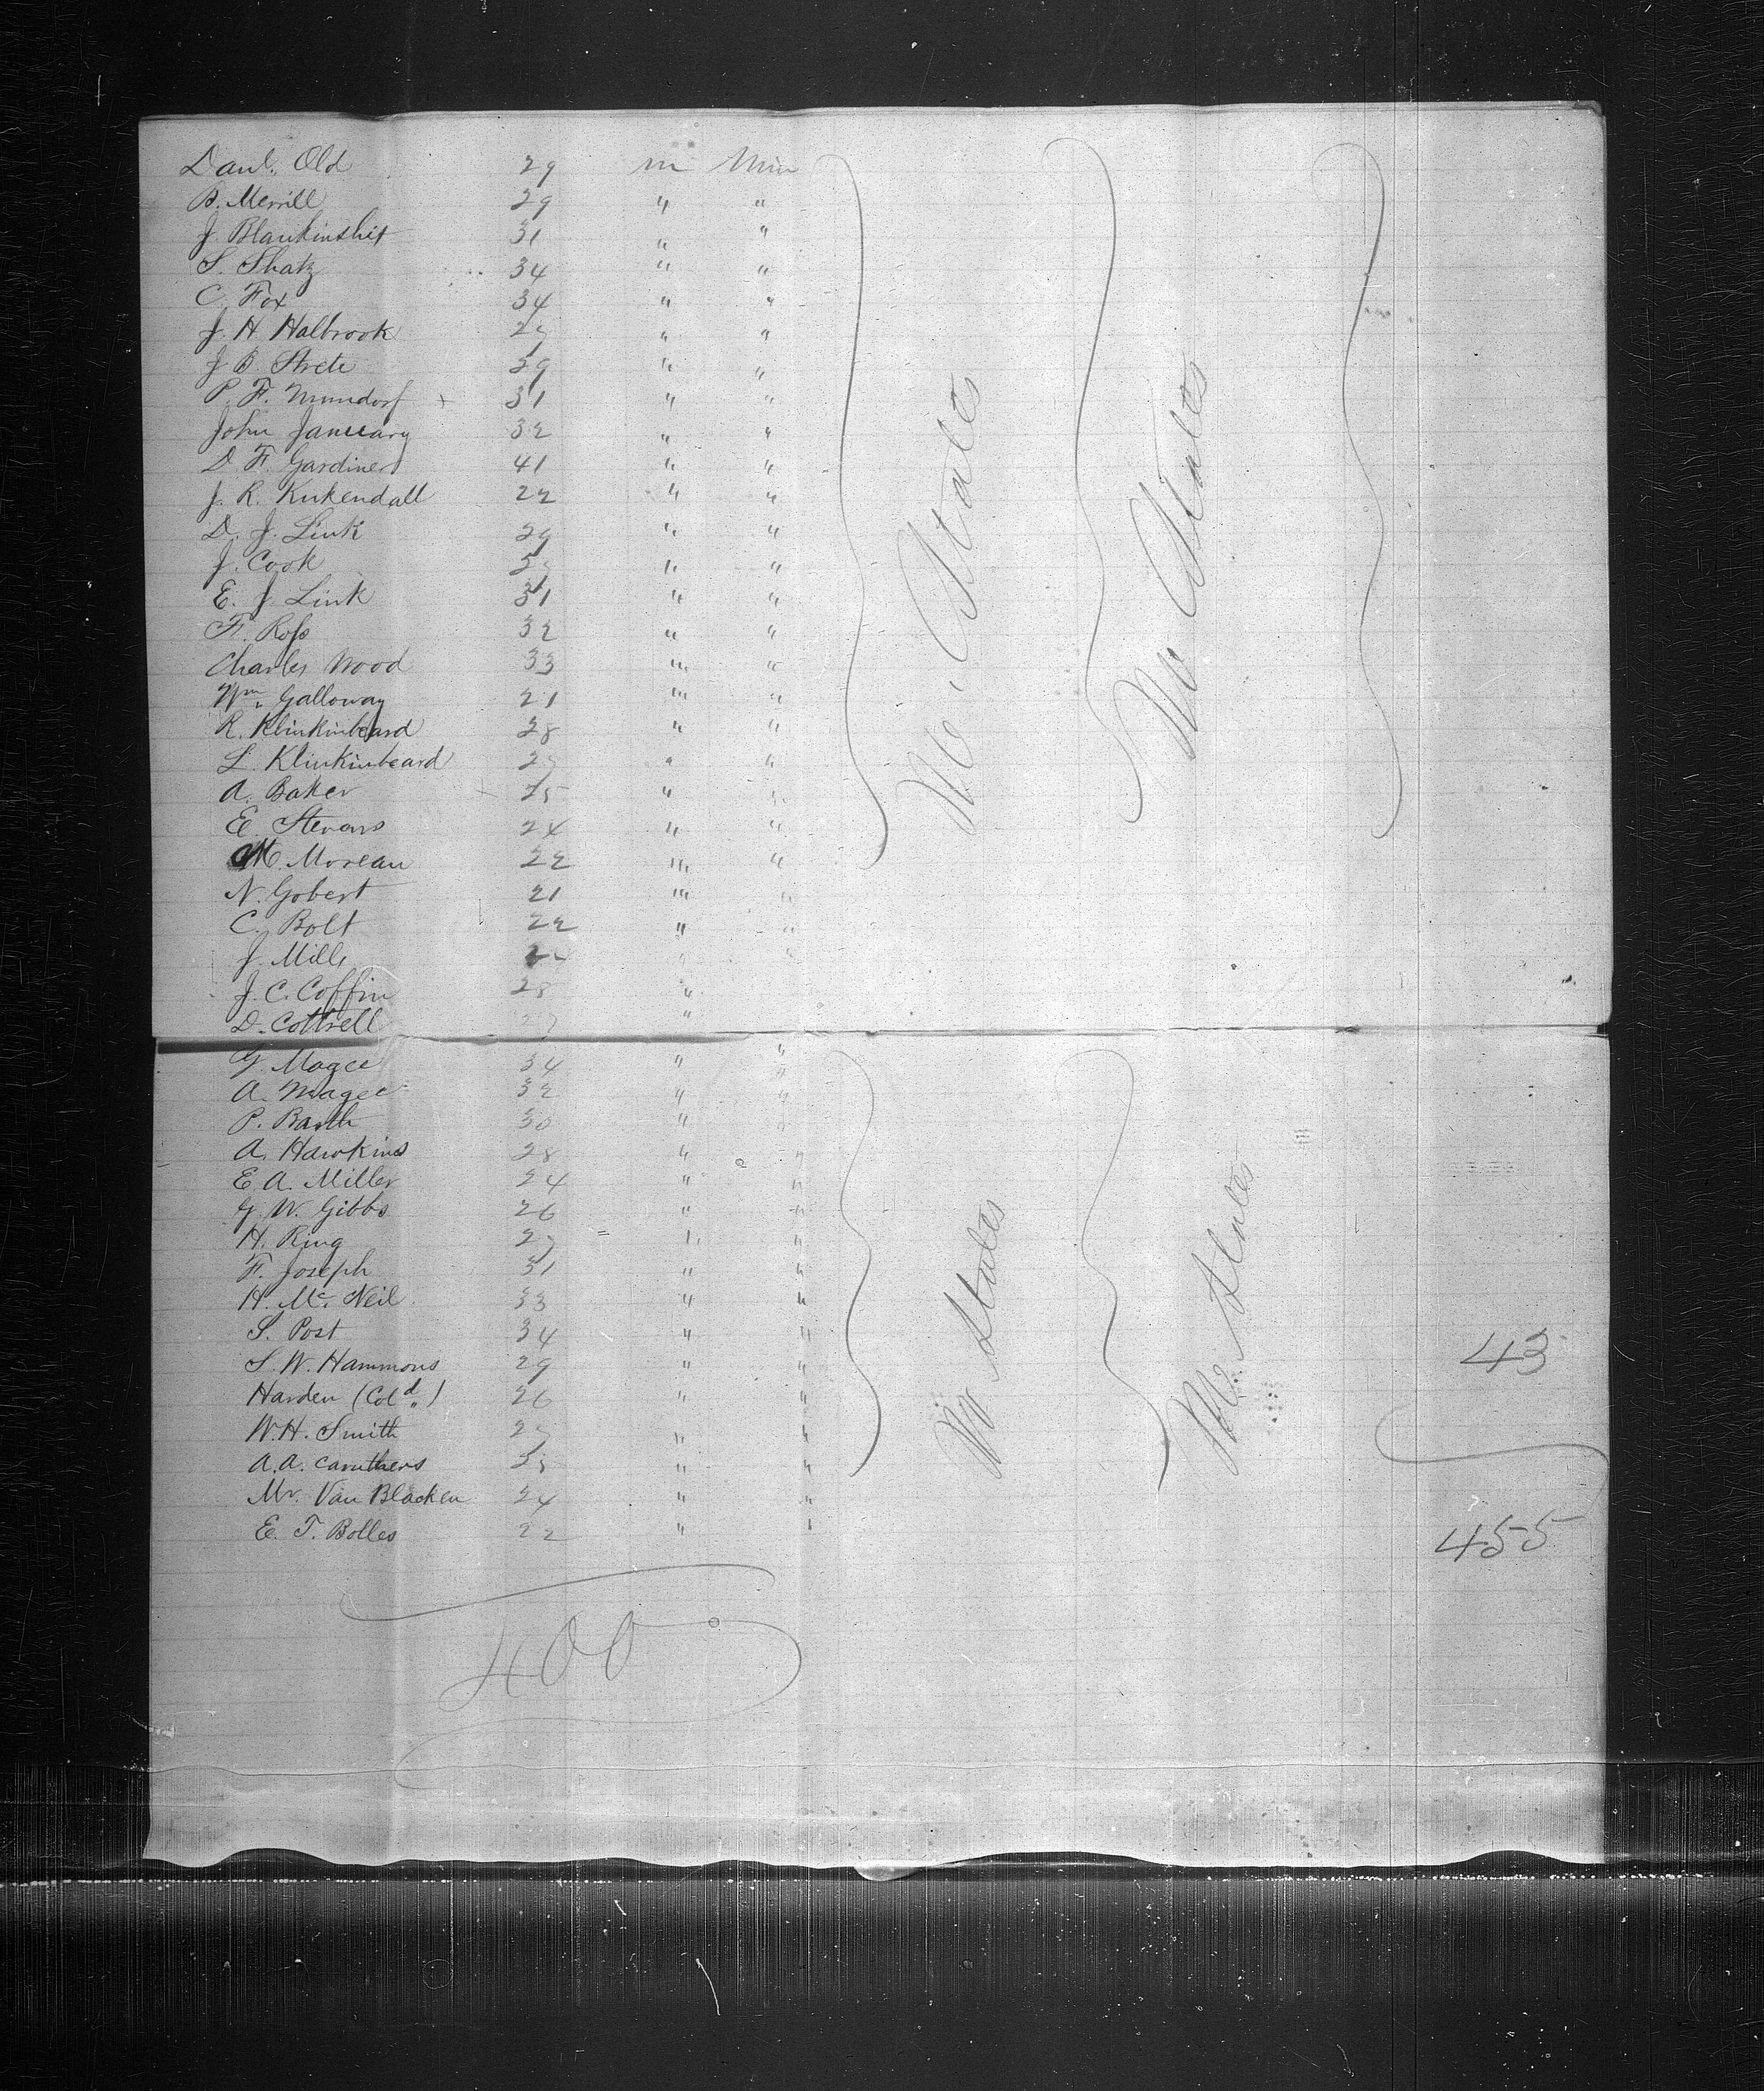 Danl. Old 29 m Min
B. Merrill 29 " "
J. Blankinshit 31 " "
S. Shatz 34 " "
C. Fox 34 " "
J. H. Halbrook " "
J B. Strete 29 " "
P. F. Mundorf 31 " "
John January 32 " "
D F. Gardiner 41 " "
J. R. Kukendall 22 " "
D. J. Link 29 " "
J. Cook " "
E. J. Link 31 " "
F. Ross 32 " "
Charles Wood 33 " "
Wm. Galloway 21 " "
R. Klinkinbeard 28 " "
L. Klinkinbeard " "
A. Baker 25 " "
E. Stevens 24 " "
M. Moreau 22 " "
N. Gobert 21 " "
C. Bolt 22 " "
J. Mills " "
J. C. Coffin 28 "
D. Cottrell "
G. Magee 34 " "
A. Magee 32 " "
P. Barth 30 " "
A. Hawkins 28 " "
E. A. Miller 24 " "
G. W. Gibbs 26 " "
H. Ring " "
F. Joseph 31 " "
H. Mc. Neil 33 " "
S. Post 34 " "
S. W. Hammons 29 " "
Harden (Cold.) 26 " "
W. H. Smith " "
A. A. Caruthers " "
Mr. Van Blacken 24 " "
E. T. Bolles 22 " "
400
States
States
States
States
43
455